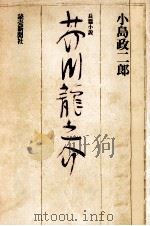 小島政二郎
長篇小説
芥川龍之介
読売新聞社
www.toutu001.com